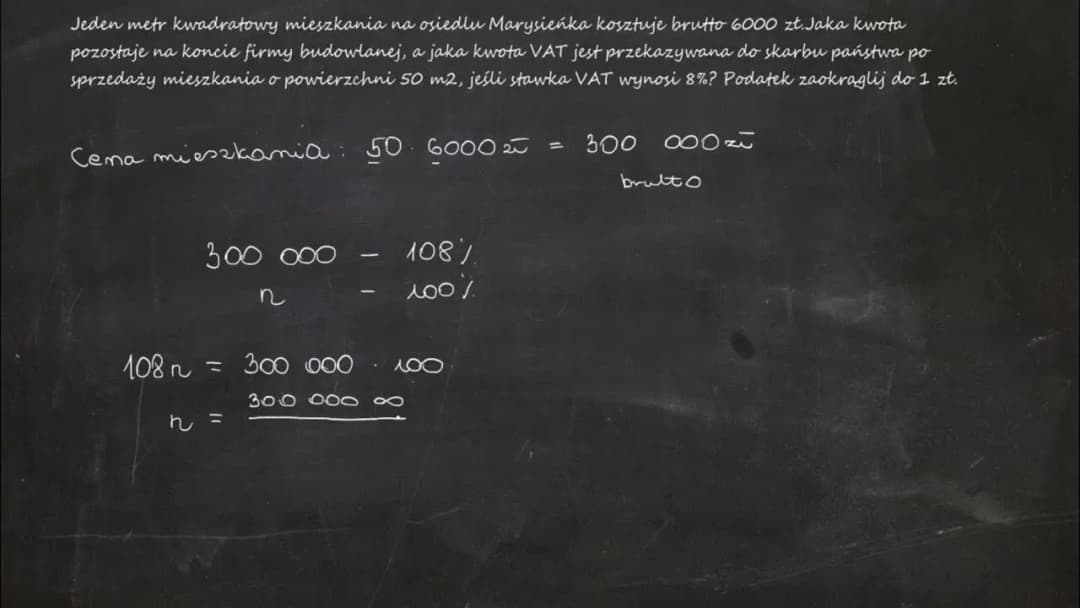 Jeden metr kwadratowy mieszkania na osiedlu Marysieńka kosztuje brutto 6000 zł.Jaka kwota
pozostaje na koncie firmy budowlanej, a jaka kwota VAT jest przekazywana do skarbu państwa po
sprzedaży mieszkania o powierzchni 50 m2, jeśli stawka VAT wynosi 8%? Podatek zaokrąglij do 1 zł.
Cena mieszkania: 50 · 6000 zł = 300 000 zł
brutto
300 000 – 108%
n – 100%
108n = 300 000 · 100
300 000 00
n =